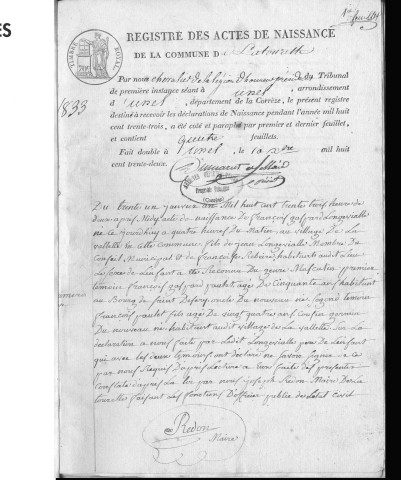 ES
1er feuillet
TIMBRE ROYAL
REGISTRE DES ACTES DE NAISSANCE
DE LA COMMUNE De Latourette
1833
Par nous chevalier de la légion d'honneur président du Tribunal
de première instance séant à ussel, arrondissement
d'ussel, département de la Corrèze, le présent registre
destiné à recevoir les déclarations de Naissance pendant l'année mil huit
cent trente-trois, a été coté et paraphé par premier et dernier feuillet,
et contient quatre feuillets.
Fait double à ussel le 10 Xbre mil huit
cent trente-deux.
Du trente un janvier an Mil huit cent trente trois heure de
deux après Midy acte de naissance de françois gaspard Longevialle
né ce jourdhuy a quatre heures du Matin au village de La
vallette en cette Commune fils de jean Longevialle Membre du
Conseil Municipal et de françoise habitants audit Lieu
Le sexe de Lenfant a été Reconnu Du genre Masculin premier
témoin françois gaspard paulet agé De Cinquante ans habitant
au Bourg de Saint oncle Du nouveau né Segond temoin
françois paulet fils agé De vingt quatre ans Cousin germain
Du nouveau né habitant audit village de La vallette Sur La
declaration a nous faite par Ledit Longevialle pere de Lenfant
qui avec les deux temoins ont declaré ne savoir signer de ce
par nous Requis Dapres Lecture a eux faite Du present
Constaté Dapres La loi par nous joseph Redon Maire De La
tourette faisant Les fonctions D'officier public de Letat civil
Redon
Maire